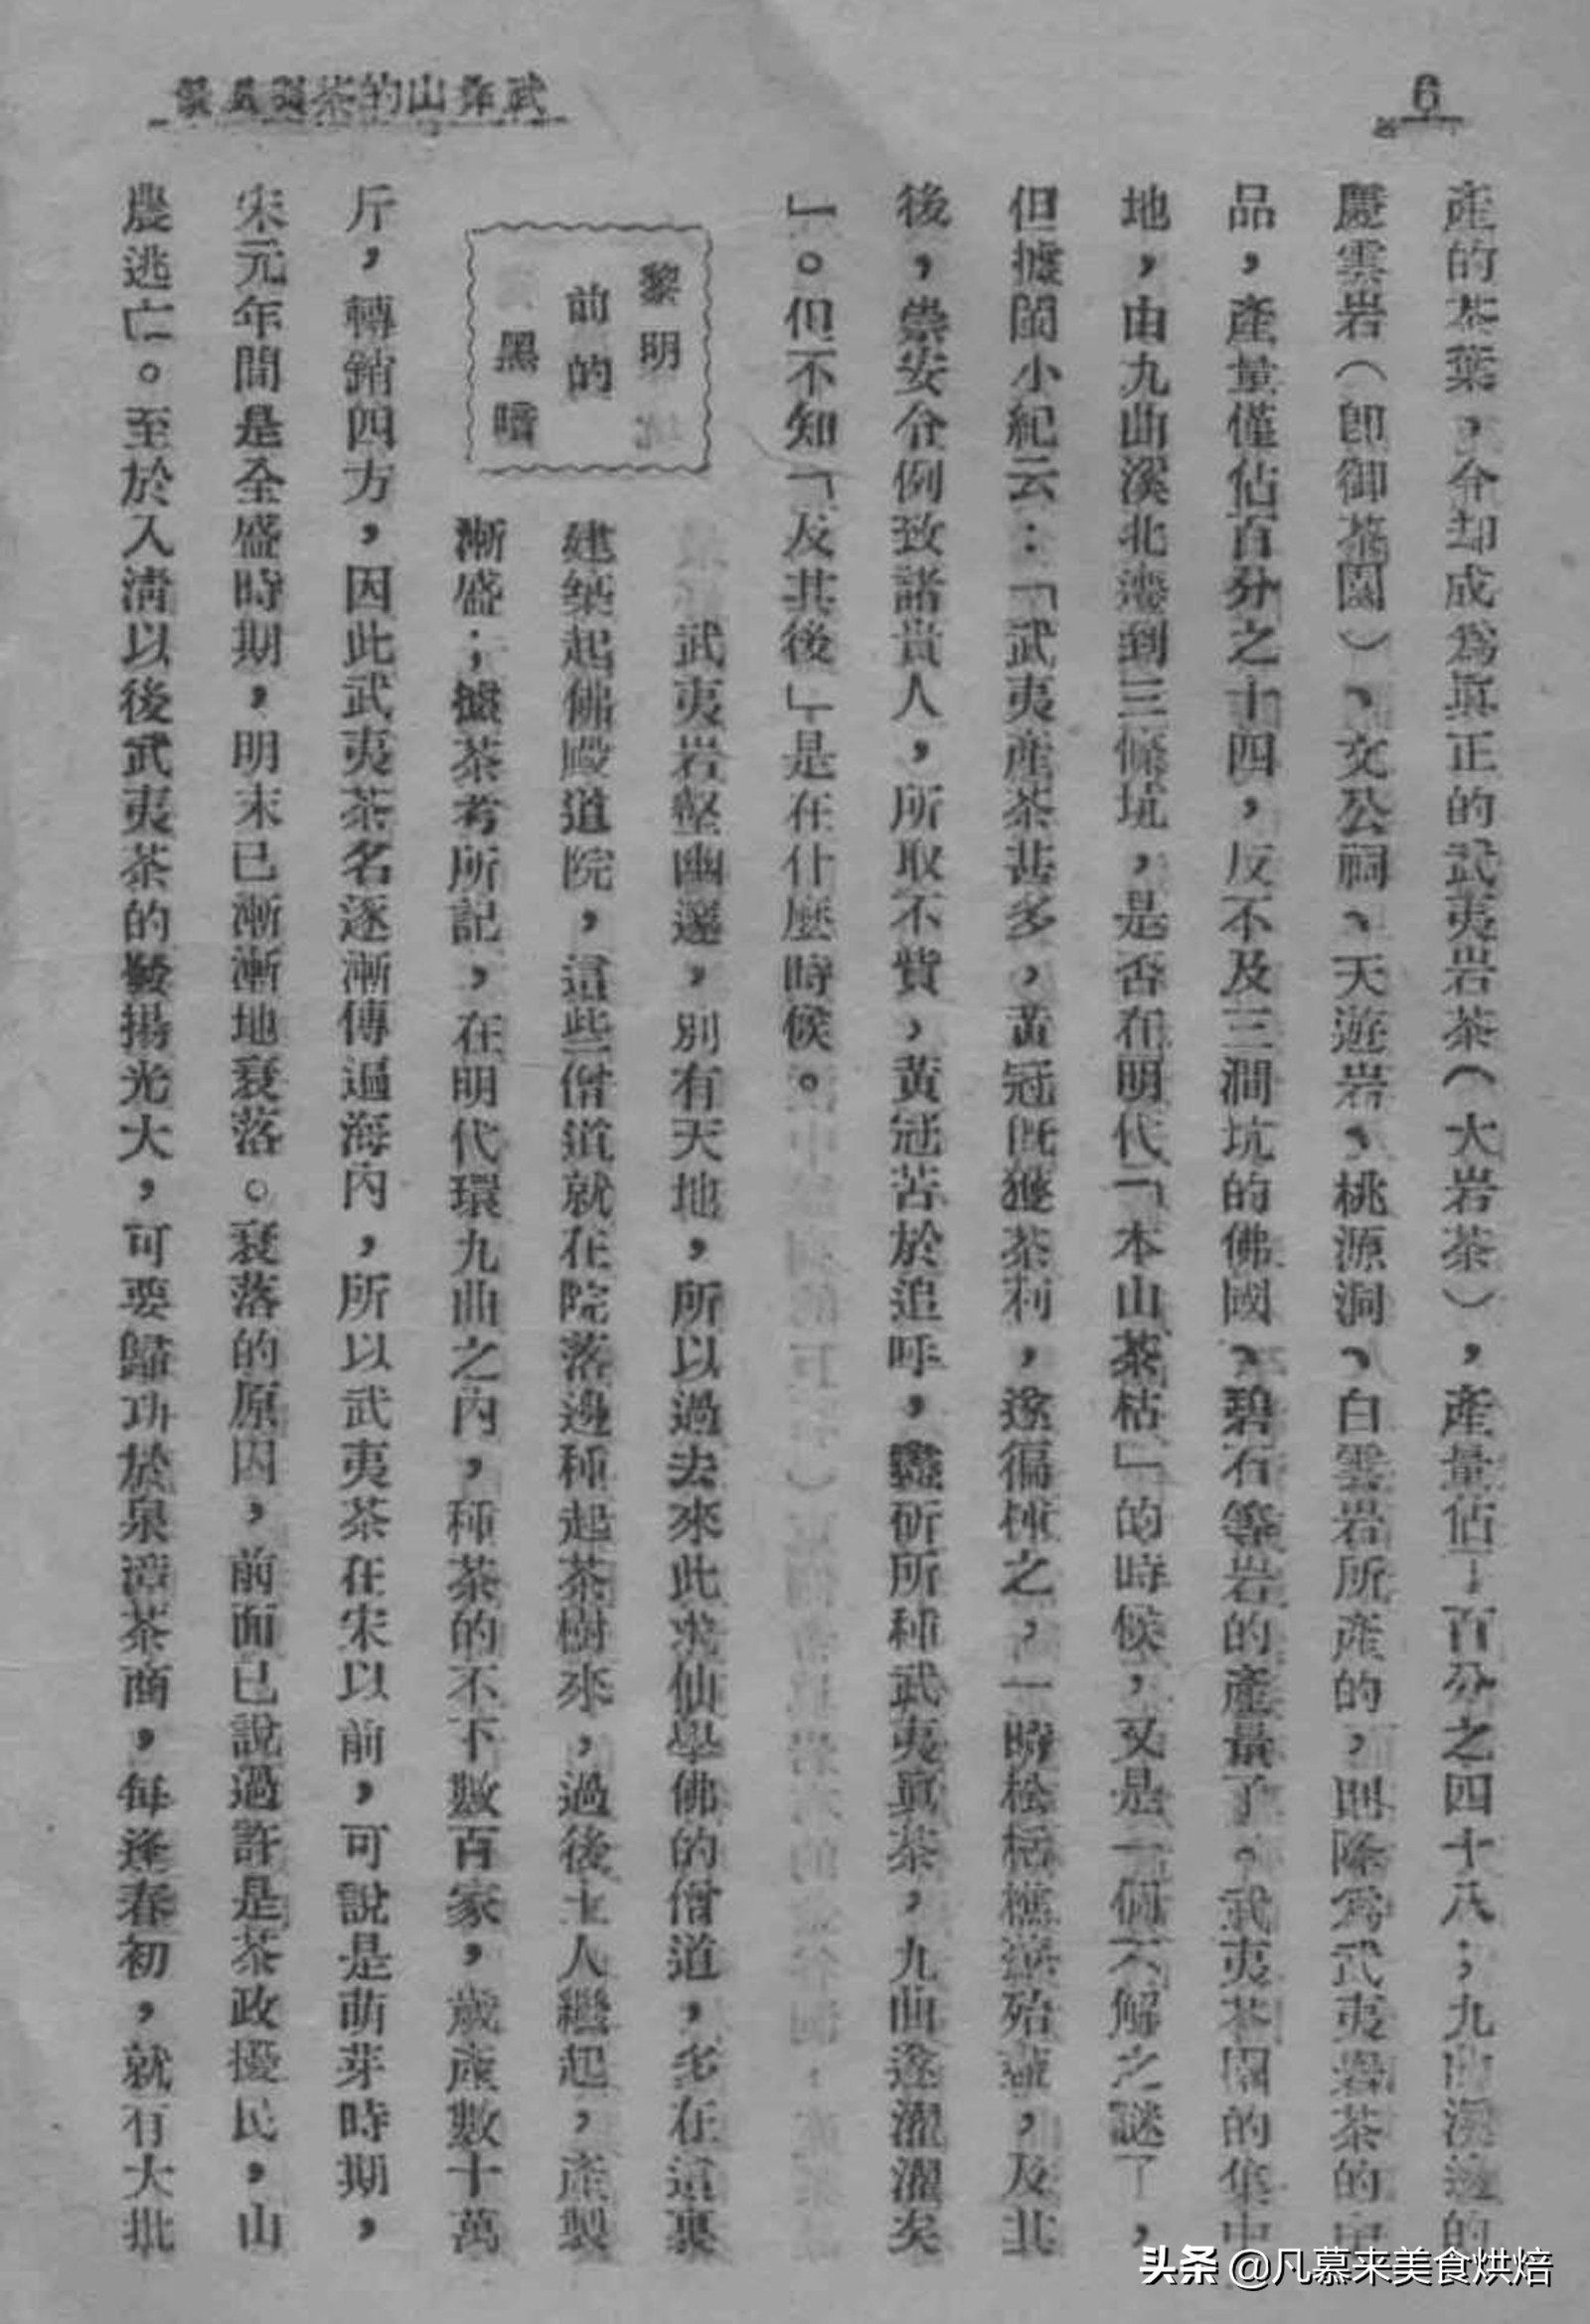 6
武彝山的茶與風景
產的茶葉，今却成爲眞正的武夷岩茶（大岩茶），產量佔了百分之四十八；九曲溪邊的
慶雲岩（卽御茶園）、文公祠、天遊岩、桃源洞、白雲岩所產的，則除爲武夷岩茶的中
品，產量僅佔百分之十四，反不及三澗坑的佛國、碧石等岩的產量了。武夷茶園的集中
地，由九曲溪北遷到三條坑，是否在明代「本山茶枯」的時候，又是一個不解之謎了，
但據閩小紀云：「武夷產茶甚多，黃冠旣獲茶利，遂徧種之，一時松栝樵蘇殆盡，及其
後，崇安令例致諸貴人，所取不貲，黃冠苦於追呼，盡斫所種武夷眞茶，九曲遂濯濯矣
」。但不知「及其後」是在什麼時候。
黎明
前的
黑暗
武夷岩壑幽邃，別有天地，所以過去來此求仙學佛的僧道，多在這裏
建築起佛殿道院，這些僧道就在院落邊種起茶樹來，過後土人繼起，產製
漸盛；據茶考所記，在明代環九曲之內，種茶的不下數百家，歲產數十萬
斤，轉銷四方，因此武夷茶名逐漸傳遍海內，所以武夷茶在宋以前，可說是萌芽時期，
宋元年間是全盛時期，明末已漸漸地衰落。衰落的原因，前面已說過許是茶政擾民，山
農逃亡。至於入淸以後武夷茶的發揚光大，可要歸功於泉漳茶商，每逢春初，就有大批
头条 @凡慕来美食烘焙